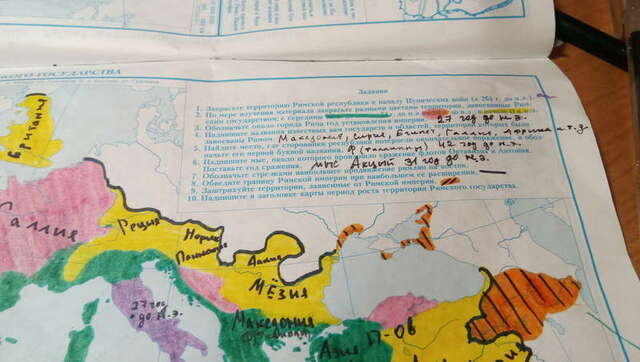 КОГО ГОСУДАРСТВА
Задания
1. Закрасьте территорию Римской республики к началу Пунических войн (к 264 г. до н.э.).
2. По мере изучения материала закрасьте разными цветами территории, завоёванные
3. Обозначьте около города Рим год установления 27 год до н.э.
4. Надпишите названия известных вам государств, областей, территорий которых были
завоёваны Римом. Македония, Сирия, Египет, Галлия, Африка и т.д
5. Найдите место, где сторонники республики потерпели окончательное поражение, и обоз-
начьте его первой буквой названия. Ф (Филиппы) 42 год до н.э.
6. Надпишите мыс, около которого произошло сражение флотов Октавиана и Антония.
Поставьте год сражения. мыс Акций 31 год до н.э.
7. Обозначьте стрелками наибольшее продвижение римлян на восток.
8. Обведите границу Римской империи при наибольшем ее расширении.
9. Заштрихуйте территории, зависимые от Римской империи.
10. Надпишите в заголовке карты период роста территории Римского государства.
Британия
Галлия
Реция
Норик
Паннония
Дакия
МЁЗИЯ
27 год
до н.э.
Македония
Азия